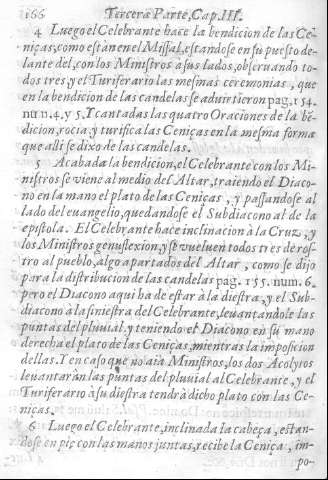 166 Tercera Parte, Cap. III.
4 Luego el Celebrante hace la bendicion de las Ce-
niças, como estàn en el Missal, estandose en su puesto de-
lante del, con los Ministros à sus lados, observando to-
dos tres y el Turiferario las mesmas ceremonias, que
en la bendicion de las candelas se advirtieron pag. 154.
num. 4. y 5. Y cantadas las quatro Oraciones de la bē-
dicion, rocia y turifica las Ceniças en la mesma forma
que alli se dixo de las candelas.
5 Acabada la bendicion, el Celebrante con los Mi-
nistros se viene al medio del Altar, traiendo el Diaco-
no en la mano el plato de las Ceniças, y passandose al
lado del euangelio, quedandose el Subdiacono al de la
epistola. El Celebrante hace inclinacion à la Cruz, y
los Ministros genuflexion, y se vuelven todos tres de ros-
tro al pueblo, algo apartados del Altar, como se dijo
para la distribucion de las candelas pag. 155. num. 6.
pero el Diacono aqui ha de estar à la diestra, y el Sub-
diacono à la siniestra del Celebrante, levantandole las
puntas del pluvial, y teniendo el Diacono en su mano
derecha el plato de las Ceniças, mientras la imposicion
dellas. Y en caso que no aia Ministros, los dos Acolytos
levantaràn las puntas del pluvial al Celebrante, y el
Turiferario à su diestra tendrà dicho plato con las Ce-
niças.
6 Luego el Celebrante, inclinada la cabeça, estan-
dose en pie con las manos juntas, recibe la Ceniça, im-
po-